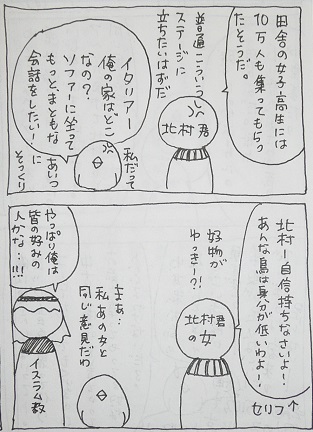 田舎の女子高生には
10万人も集ってもらっ
たそうだ。
普通こういう
ステージに
立ちたいはずだ
北村君
イタリアー
俺の家はどこ
なの?
ソファーに坐って
もっとまともな
会話をしたい!
私だって
あいつ
に
そっくり
北村ー自信持ちなさいよー!
あんな鳥は身分が低いわよー!
セリフ↑
好物が
わっきー?!
北村君
の女
まぁ…
私あの女と
同じ意見だわ
やっぱり俺は
皆の好みの
人かな…!!!
イスラム教